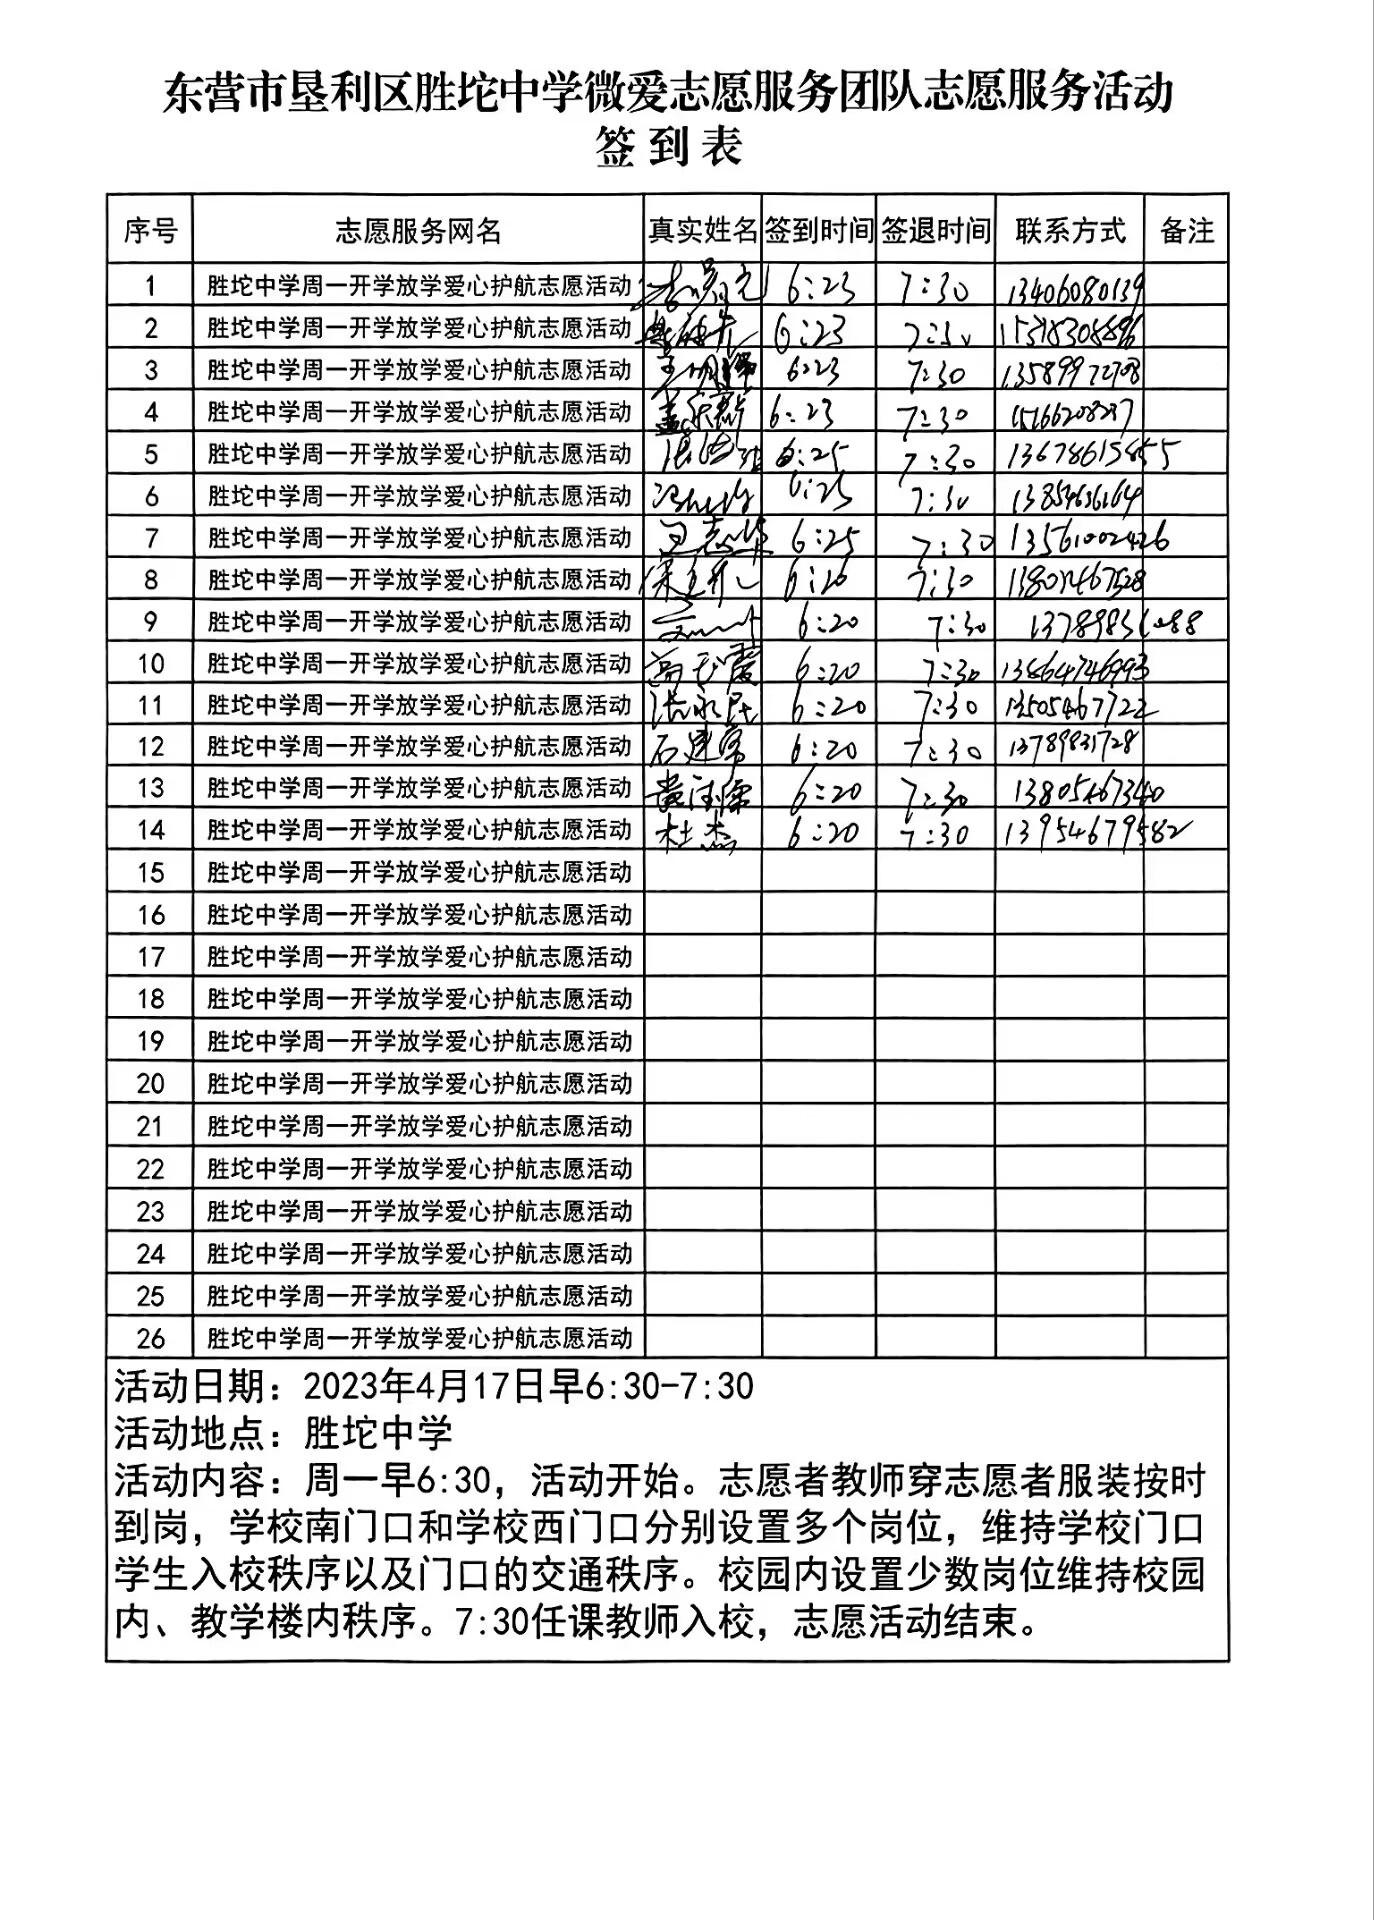 东营市垦利区胜坨中学微爱志愿服务团队志愿服务活动
签到表
序号 志愿服务网名 真实姓名 签到时间 签退时间 联系方式 备注
1 胜坨中学周一开学放学爱心护航志愿活动 6:23 7:30 13406080139
2 胜坨中学周一开学放学爱心护航志愿活动 6:23 7:30
3 胜坨中学周一开学放学爱心护航志愿活动 6:23 7:30 13589972708
4 胜坨中学周一开学放学爱心护航志愿活动 6:23 7:30
5 胜坨中学周一开学放学爱心护航志愿活动 6:25 7:30 13678615855
6 胜坨中学周一开学放学爱心护航志愿活动 6:25 7:30
7 胜坨中学周一开学放学爱心护航志愿活动 6:25 7:30 13561002426
8 胜坨中学周一开学放学爱心护航志愿活动 6:20 7:30
9 胜坨中学周一开学放学爱心护航志愿活动 6:20 7:30
10 胜坨中学周一开学放学爱心护航志愿活动 6:20 7:30 13864746993
11 胜坨中学周一开学放学爱心护航志愿活动 张永民 6:20 7:30 13505467722
12 胜坨中学周一开学放学爱心护航志愿活动 6:20 7:30 13789831728
13 胜坨中学周一开学放学爱心护航志愿活动 6:20 7:30 13805467340
14 胜坨中学周一开学放学爱心护航志愿活动 杜杰 6:20 7:30 13954679582
15 胜坨中学周一开学放学爱心护航志愿活动
16 胜坨中学周一开学放学爱心护航志愿活动
17 胜坨中学周一开学放学爱心护航志愿活动
18 胜坨中学周一开学放学爱心护航志愿活动
19 胜坨中学周一开学放学爱心护航志愿活动
20 胜坨中学周一开学放学爱心护航志愿活动
21 胜坨中学周一开学放学爱心护航志愿活动
22 胜坨中学周一开学放学爱心护航志愿活动
23 胜坨中学周一开学放学爱心护航志愿活动
24 胜坨中学周一开学放学爱心护航志愿活动
25 胜坨中学周一开学放学爱心护航志愿活动
26 胜坨中学周一开学放学爱心护航志愿活动
活动日期：2023年4月17日早6:30-7:30
活动地点：胜坨中学
活动内容：周一早6:30，活动开始。志愿者教师穿志愿者服装按时
到岗，学校南门口和学校西门口分别设置多个岗位，维持学校门口
学生入校秩序以及门口的交通秩序。校园内设置少数岗位维持校园
内、教学楼内秩序。7:30任课教师入校，志愿活动结束。